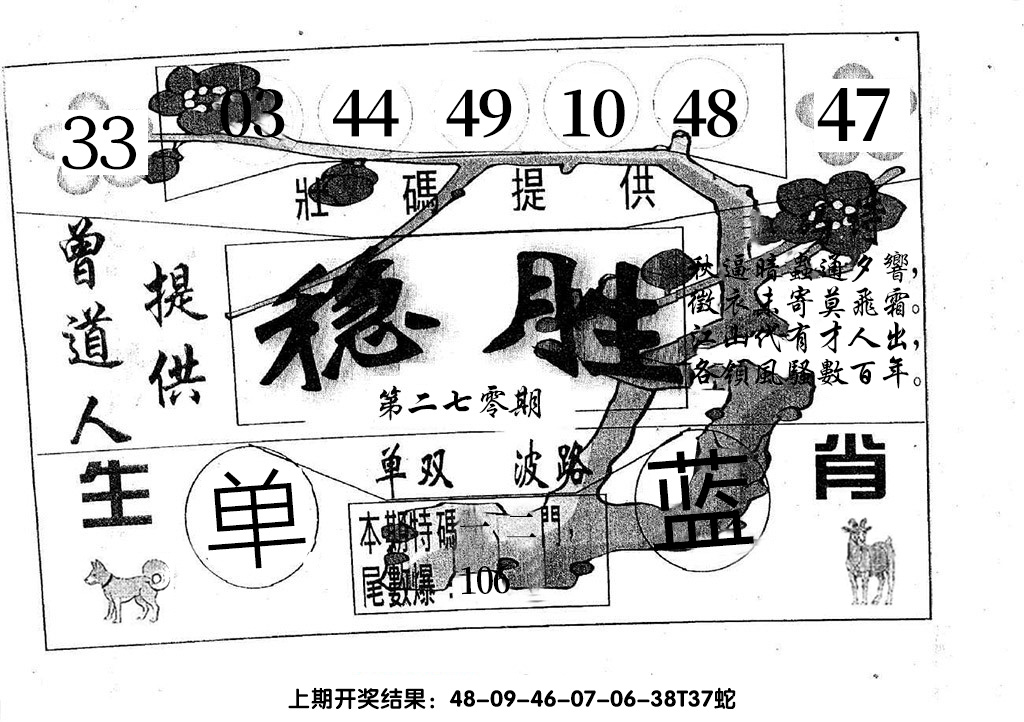 33 03 44 49 10 48 47
壯碼提供
曾道人
提供
稳胜
第二七零期
秋逼暗蟲通夕響，
徵衣未寄莫飛霜。
江山代有才人出，
各領風騷數百年。
生肖
单双 波路
单
蓝
本期特碼一、二門，
尾數爆：106
上期开奖结果：48-09-46-07-06-38T37蛇